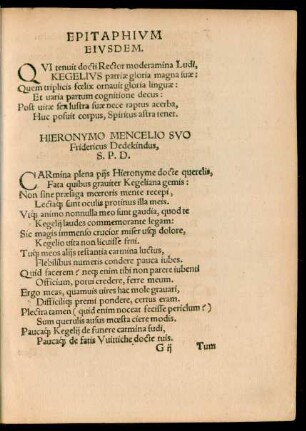 EPITAPHIVM
EIVSDEM.
QVI tenuit docti Rector moderamina Ludi,
KEGELIVS patriæ gloria magna suæ:
Quem triplicis fœlix ornauit gloria linguæ:
Et uaria partum cognitione decus:
Post uitæ sex lustra suæ nece raptus acerba,
Huc posuit corpus, Spiritus astra tenet.
HIERONYMO MENCELIO SVO
Fridericus Dedekindus,
S. P. D.
CARmina plena pijs Hieronyme docte querelis,
Fata quibus grauiter Kegeliana gemis:
Non sine præsaga mœroris mente recepi,
Lectaq; sunt oculis protinus illa meis.
Vtq; animo nonnulla meo sunt gaudia, quod te
Kegelij laudes commemorante legam:
Sic magis immenso crucior miser usq; dolore,
Kegelio uita non licuisse frui.
Tuq; meos alijs testantia carmina luctus,
Flebilibus numeris condere pauca iubes.
Quid facerem? neq; enim tibi non parere iubenti
Officium, potui credere, ferre meum.
Ergo meas, quamuis uires hac mole grauari,
Difficiliq; premi pondere, certus eram.
Plectra tamen (quid enim noceat fecisse periclum?)
Sum querulis ausus mœsta ciere modis.
Paucaq; Kegelij de funere carmina fudi,
Paucaq; de fatis Vuittiche docte tuis.
G ij Tum